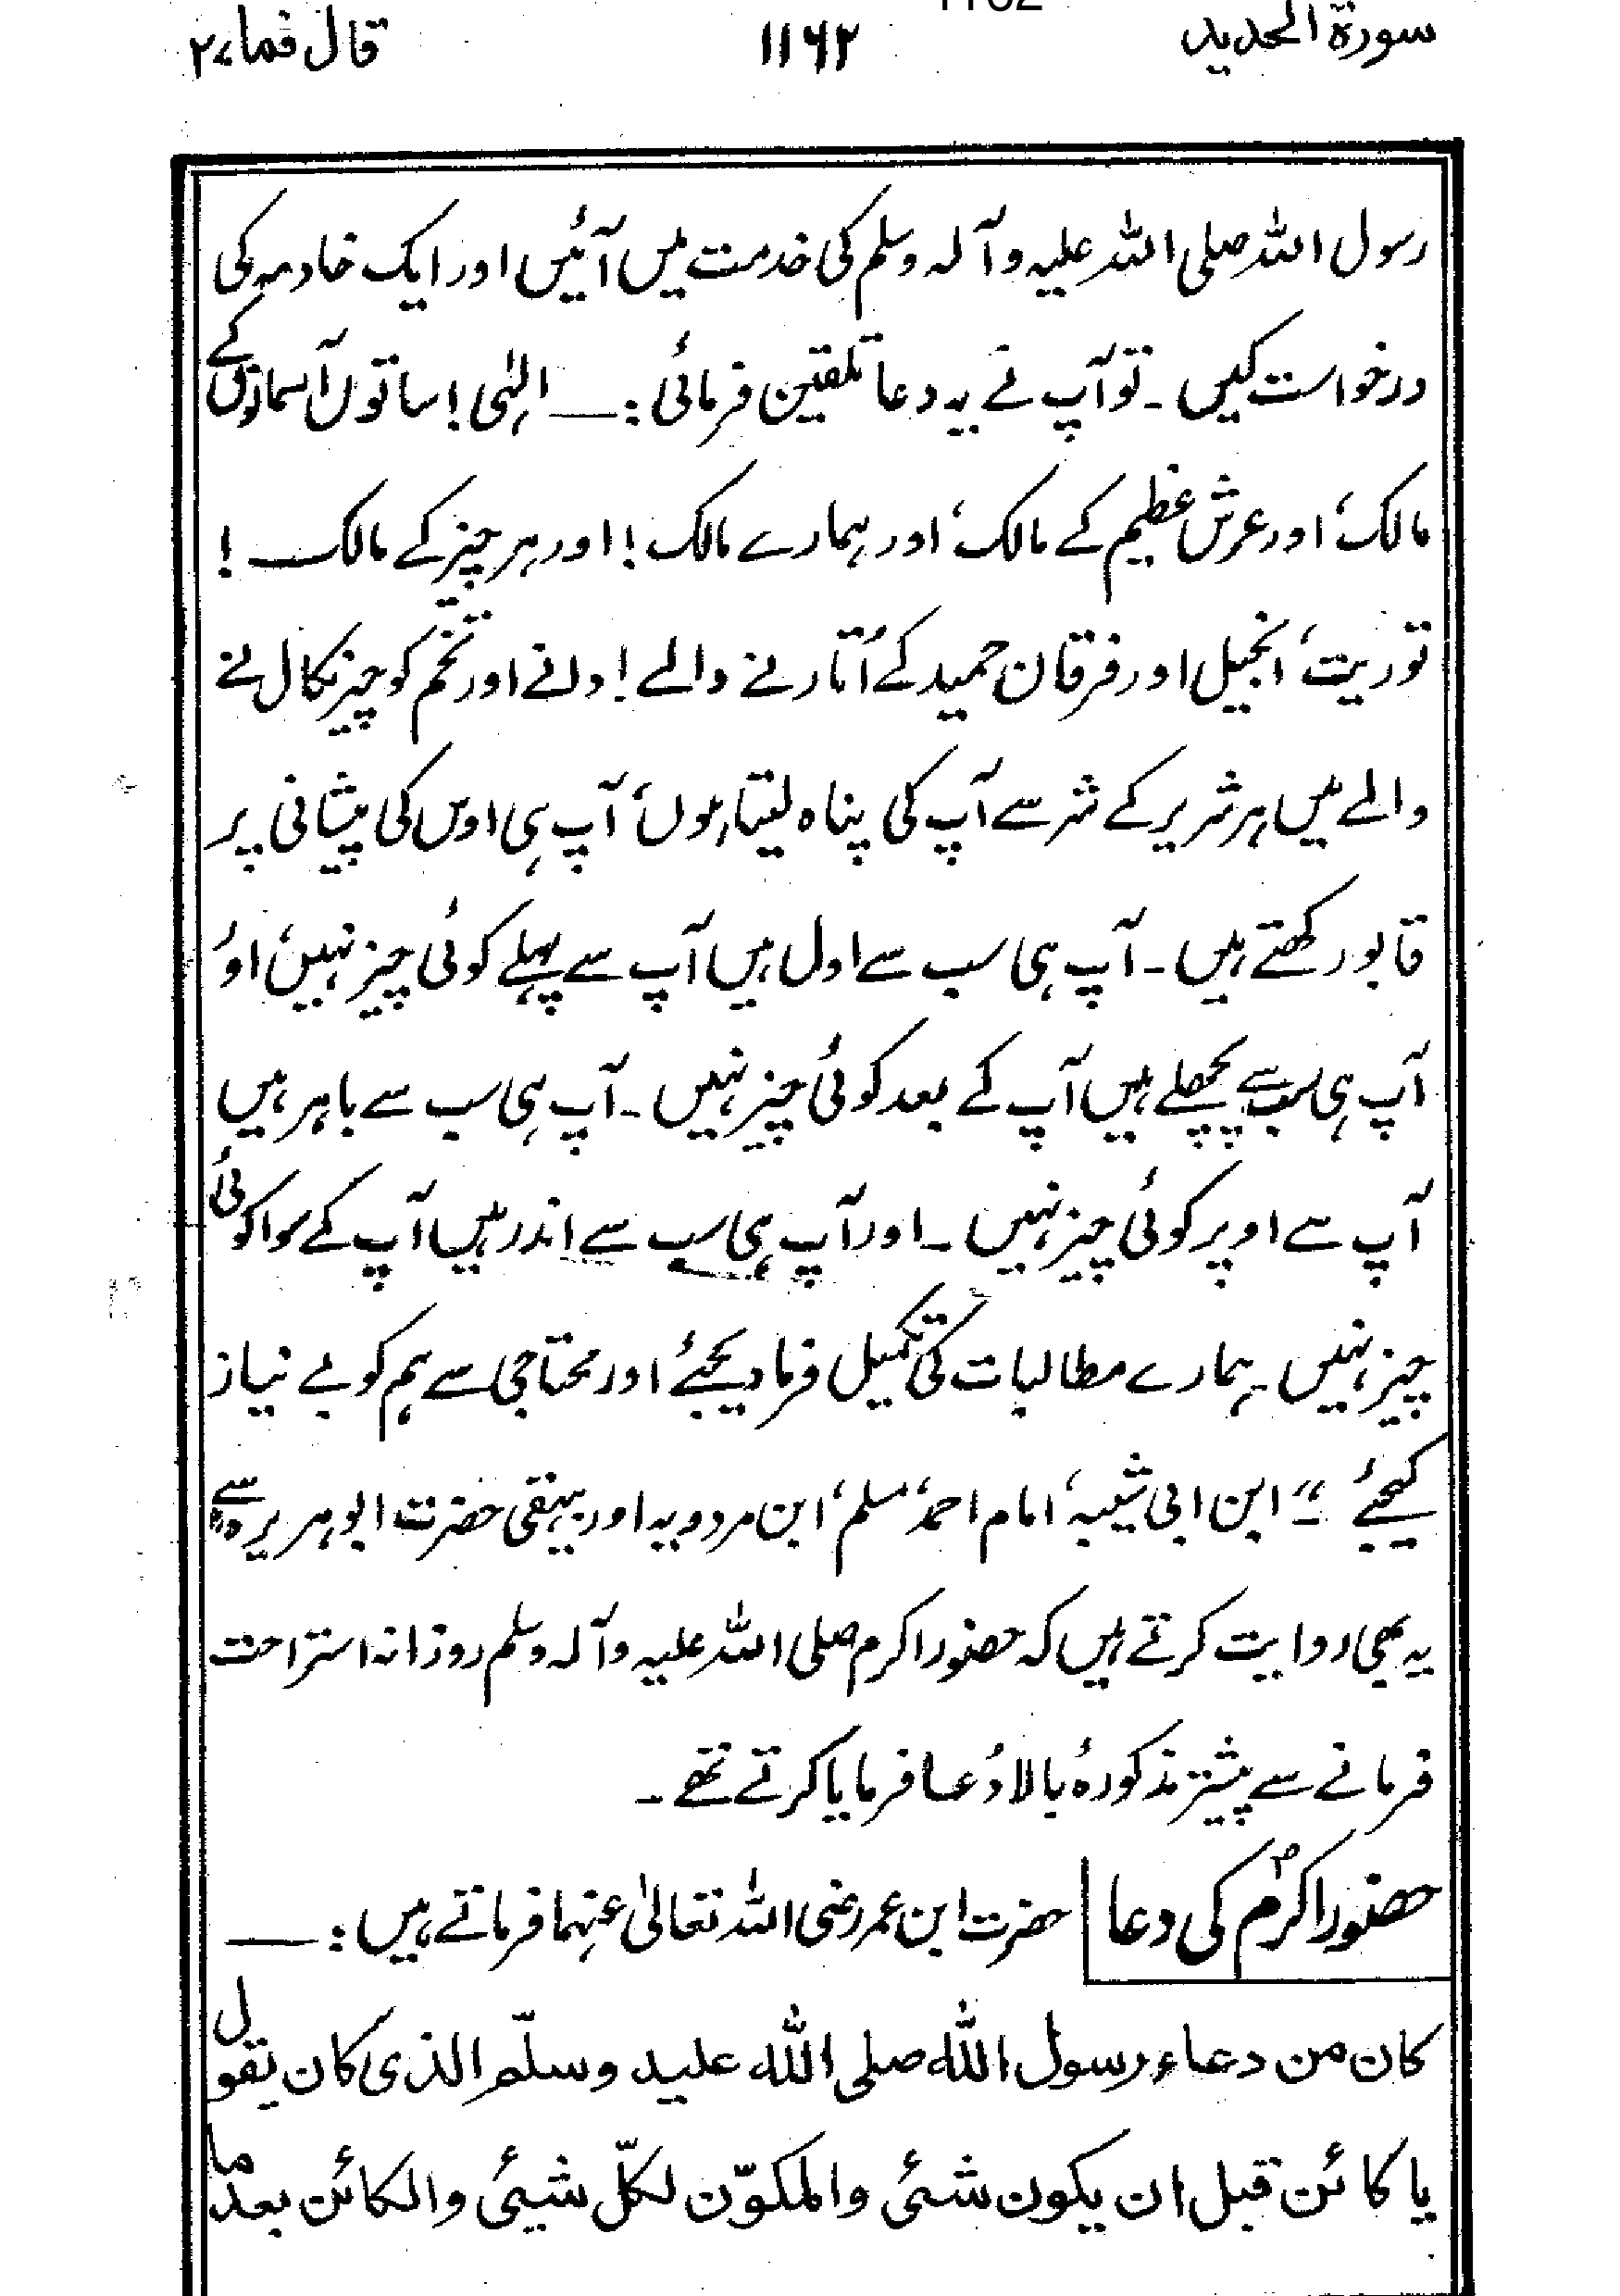 سورۃ الحدید ۱۱۶۲ قال فما ۲۷
رسول اللہ صلی اللہ علیہ وآلہ وسلم کی خدمت میں آئیں اور ایک خادمہ کی
درخواست کیں ۔ تو آپ نے یہ دعا تلقین فرمائی : ـــ الہٰی ! ساتوں آسمانوں کے
مالک ، اور عرش عظیم کے مالک ، اور ہمارے مالک ! اور ہر چیز کے مالک !
توریت ، انجیل اور فرقان حمید کے اُتارنے والے ! دانے اور تخم کو چیز نکال نے
والے میں ہر شریر کے شر سے آپ کی پناہ لیتا ہوں ، آپ ہی اوس کی پیشانی پر
قابو رکھتے ہیں ۔ آپ ہی سب سے اول ہیں آپ سے پہلے کوئی چیز نہیں ، اور
آپ ہی سب سے پچھلے ہیں آپ کے بعد کوئی چیز نہیں ۔ آپ ہی سب سے باہر ہیں
آپ سے اوپر کوئی چیز نہیں ۔ اور آپ ہی سب سے اندر ہیں آپ کے سوا کوئی
چیز نہیں ۔ ہمارے مطالبات کی تکمیل فرما دیجئے اور محتاجی سے ہم کو بے نیاز
کیجئے ۔" ابن ابی شیبہ ، امام احمد ، مسلم ، ابن مردویہ اور بیہقی حضرت ابو ہریرہؓ سے
یہ بھی روایت کرتے ہیں کہ حضور اکرم صلی اللہ علیہ وآلہ وسلم روزانہ استراحت
فرمانے سے پیشتر مذکورۂ بالا دُعا فرمایا کرتے تھے ۔
حضور اکرمؐ کی دعا حضرت ابن عمر رضی اللہ تعالیٰ عنہما فرماتے ہیں : ـــ
کان من دعاء رسول اللّٰہ صلی اللّٰہ علیہ وسلّم الذی کان یقول
یا کائن قبل ان یکون شئی والمکوّن لکلّ شیئی والکائن بعد ما